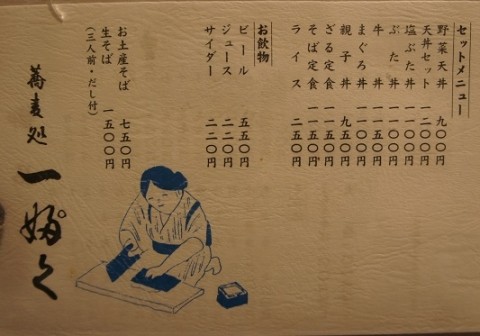 セットメニュー
野菜天丼 九〇〇円
天丼セット 一二〇〇円
塩ぶた丼 一一〇〇円
ぶた丼 一一〇〇円
牛丼 一一五〇円
まぐろ丼 一一〇〇円
親子丼 九五〇円
ざる定食 一一五〇円
そば定食 一一五〇円
ライス 二五〇円
お飲物
ビール 五五〇円
ジュース 二二〇円
サイダー 二二〇円
お土産そば 七五〇円
生そば 一五〇〇円
(三人前・だし付)
蕎麦処 一婦゜く